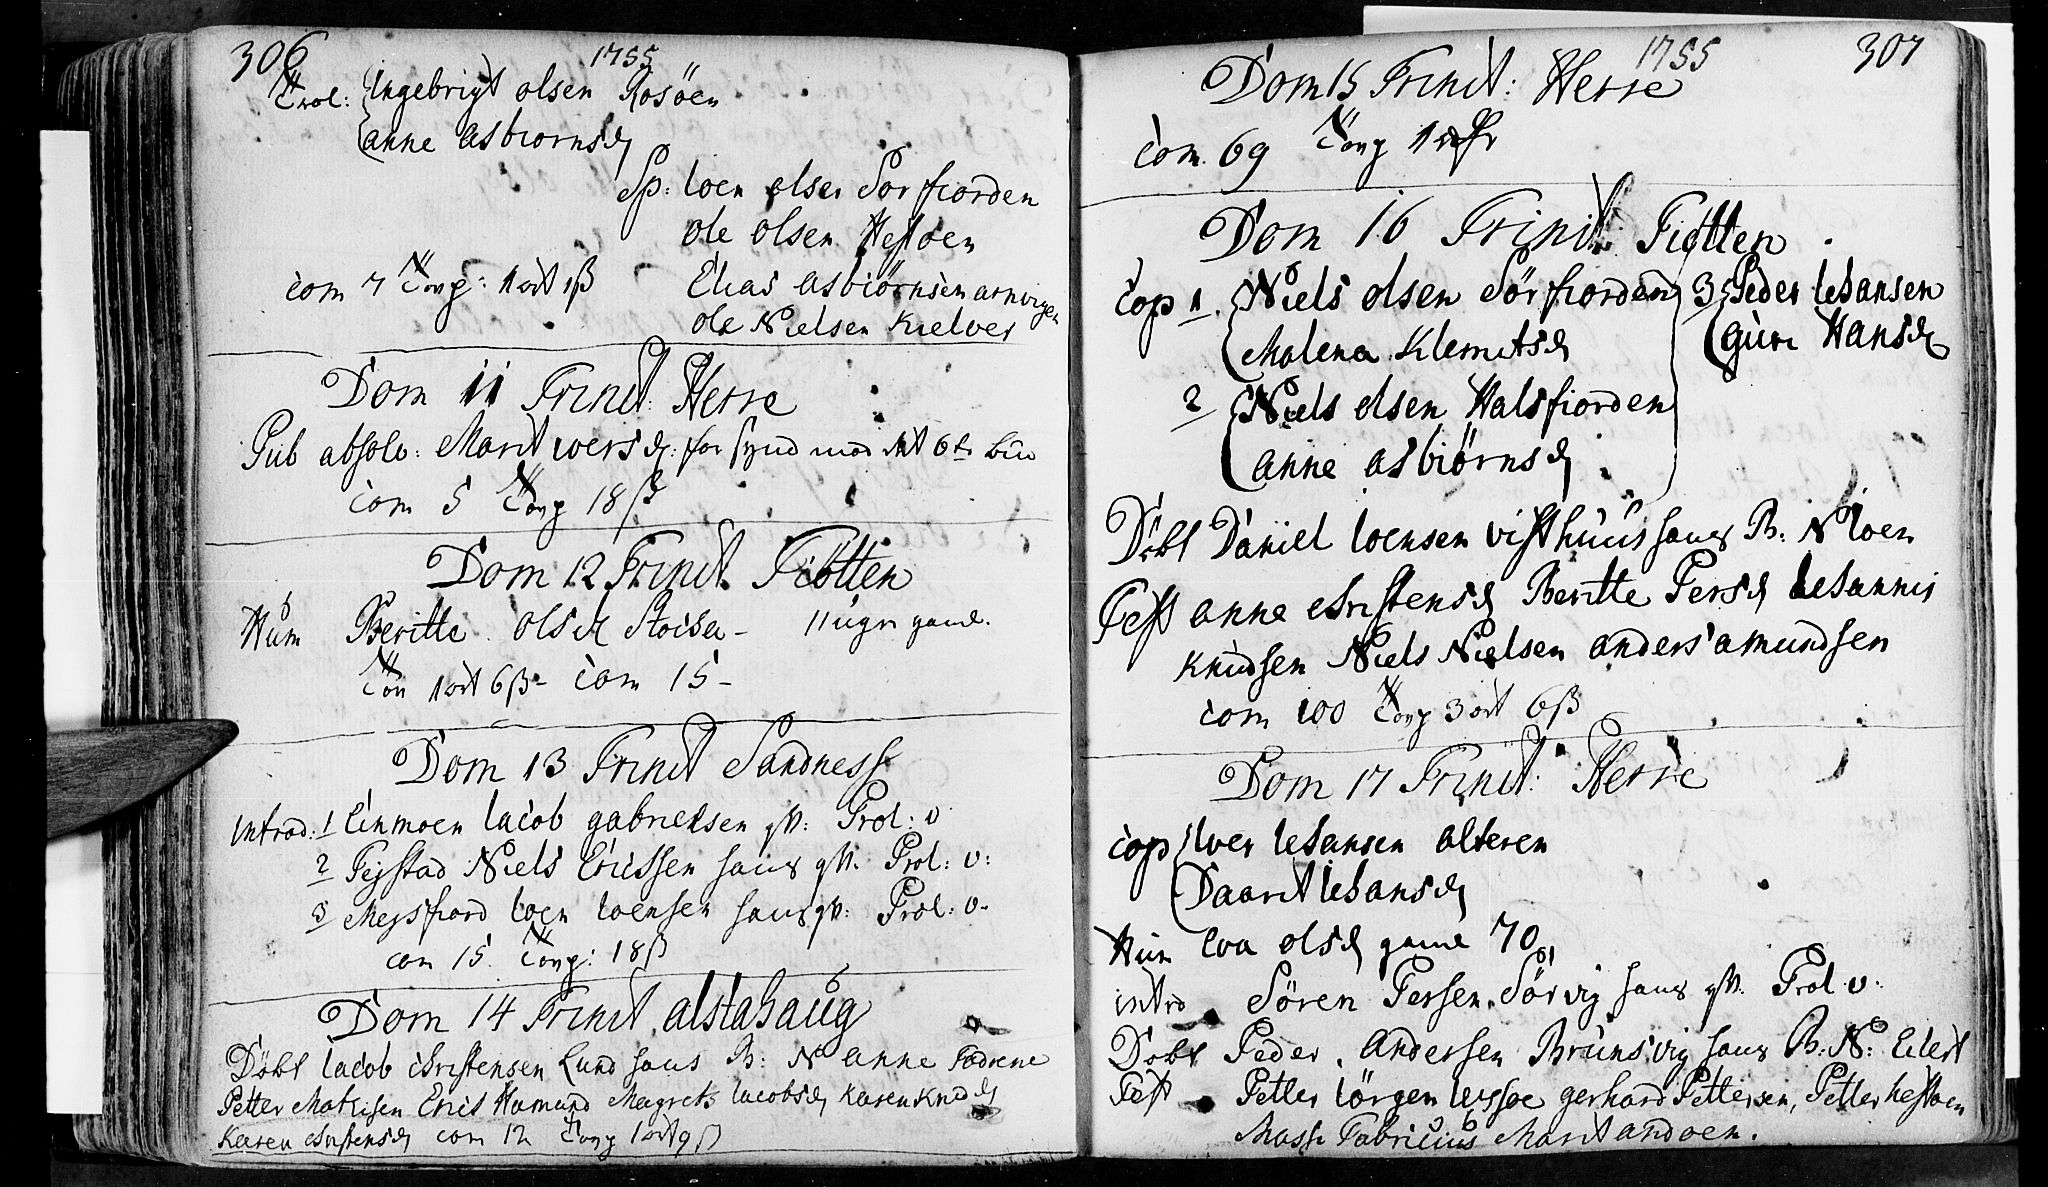 306
1755
Trol: Ingebrigt olsen Rosöen
anne asbiornsd
Sp: Ioen olsen Sorfiorden
ole olsen Hestoen
com 7 Tavg: 1 ort 1ß Elias asbiörnsen
ole Nielsen Kielver
Dom 11 Trinit: Herre
Pub absolv: Marit Iversd: for synd mod det 6te bud
com 5 Tavg 18 ß
Dom 12 Trinit. Tiötten
Hum Beritte olsd Stoisa - 11 uger gamel.
Tav 1 ort 6ß - com 15 -
Dom 13 Trinit Sandness
introd: 1 Einmoen Iacob gabrielsen Prol: v
2 Fejstad Niels Ericssen hans Prol: v:
3 Mejsfiord Ioen Ioensen hans Prol: v.
com 15. Tavg: 18ß
Dom 14 Trinit alstahaug
Döbt Iacob christensen Lund hans B: N anne Fadrene
Petter Mathisen Eric Hamund Magrete Iacobsd Karen Knudsd
Karen christensd com 12 Tavg 1 ort 9ß
1755
307
Dom 15 Trinit: Herre
com. 69 Tavg
Dom 16 Trinit: Tiötten
cop 1. Niels olsen Sörfiorden 3 Peder Iohansen
Malena Klemetsd guri Hansd
2 Niels olsen Halsfiorden
anne asbiörnsd
Döbt Daniel Ioensen Visthuus hans B: N Ioen
Test anne christensd Beritte Persd Iohannis
Knudsen Niels Nielsen anders amundsen
com 100 Tavg 3 ort 6ß
Dom 17 Trinit: Herre
cop Iver Iohansen alteren
Daarit Iohansd
Hum Eva olsd gamel 70
introd Sören Persen Sörvig hans Prol: v:
Döbt Peder Andersen Brunsvig hans B: N: Eilert
Test Petter Iörgen gerhard Pettersen, Petter hestoen
Mass Fabricius Marit andoen.